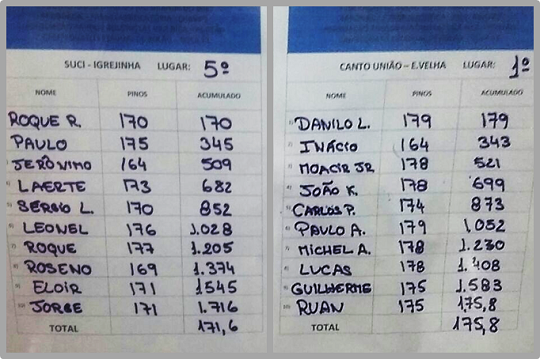 SUCI - IGREJINHA LUGAR: 5º
NOME PINOS ACUMULADO
ROQUE R. 170 170
PAULO 175 345
JERÔNIMO 164 509
LAERTE 173 682
SÉRGIO L. 170 852
LEONEL 176 1.028
ROQUE 177 1.205
ROSENO 169 1.374
ELOIR 171 1545
JORGE 171 1.716
TOTAL 171,6
CANTO UNIÃO – E.VELHA LUGAR: 1º
NOME PINOS ACUMULADO
DANILO L. 179 179
INÁCIO 164 343
MOACIR JR 178 521
JOÃO K. 178 699
CARLOS P. 174 873
PAULO A. 179 1.052
MICHEL A. 178 1.230
LUCAS 178 1.408
GUILHERME 175 1.583
RUAN 175 175,8
TOTAL 175,8